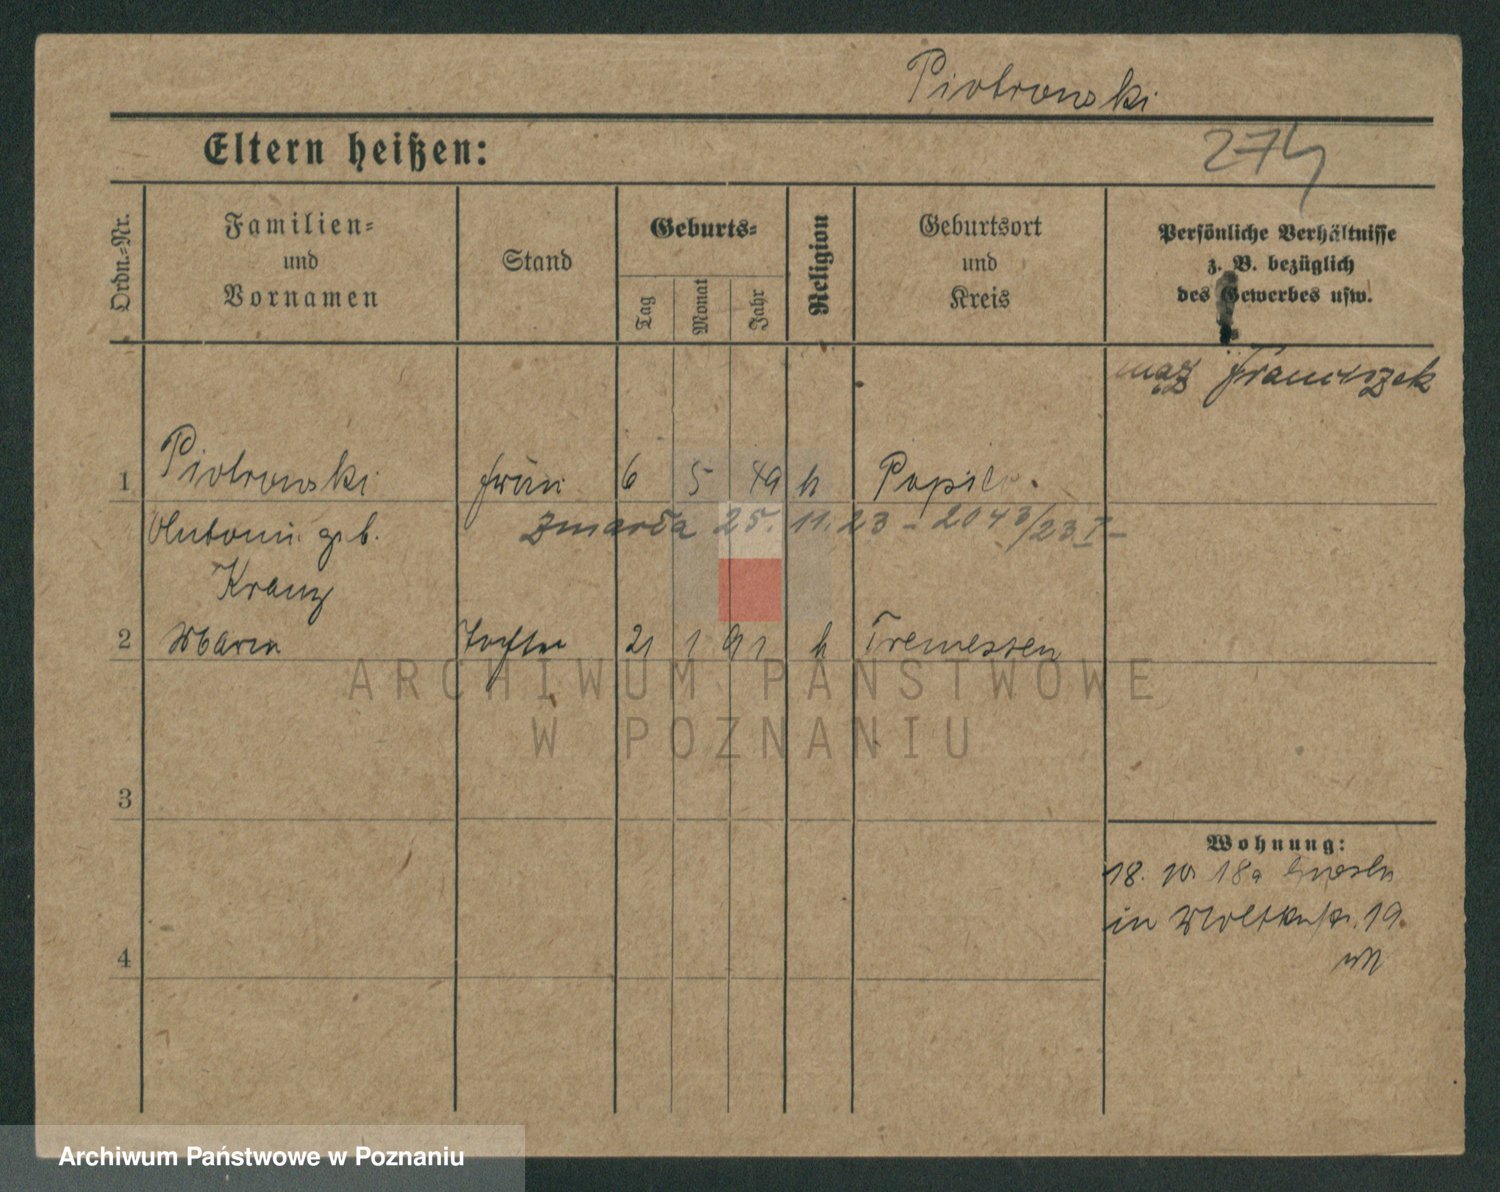 Piotrowski
274
Eltern heißen:
Ordn.-Nr.
Familien-
und
Vornamen
Stand
Geburts-
Tag
Monat
Jahr
Religion
Geburtsort
und
Kreis
Persönliche Verhältnisse
z. B. bezüglich
des Gewerbes usw.
mąż Franciszek
1 Piotrowski 6 5 49 k
Zmarła 25. 11. 23 - 2043/23 I -
Antonin geb.
Kranz
2 Maria Tochter 21 1 91 k Tremessen
3
4
Wohnung:
18. 10. 18
in 19.
ARCHIWUM PAŃSTWOWE
W POZNANIU
Archiwum Państwowe w Poznaniu